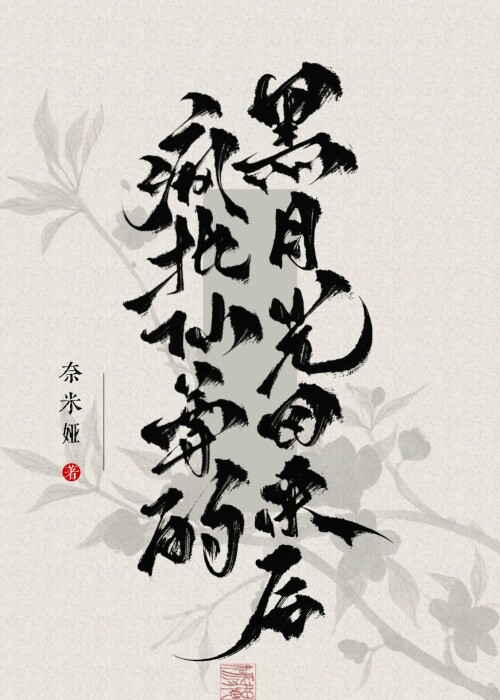 疯批仙尊的
黑月光回来后
奈米娅
著